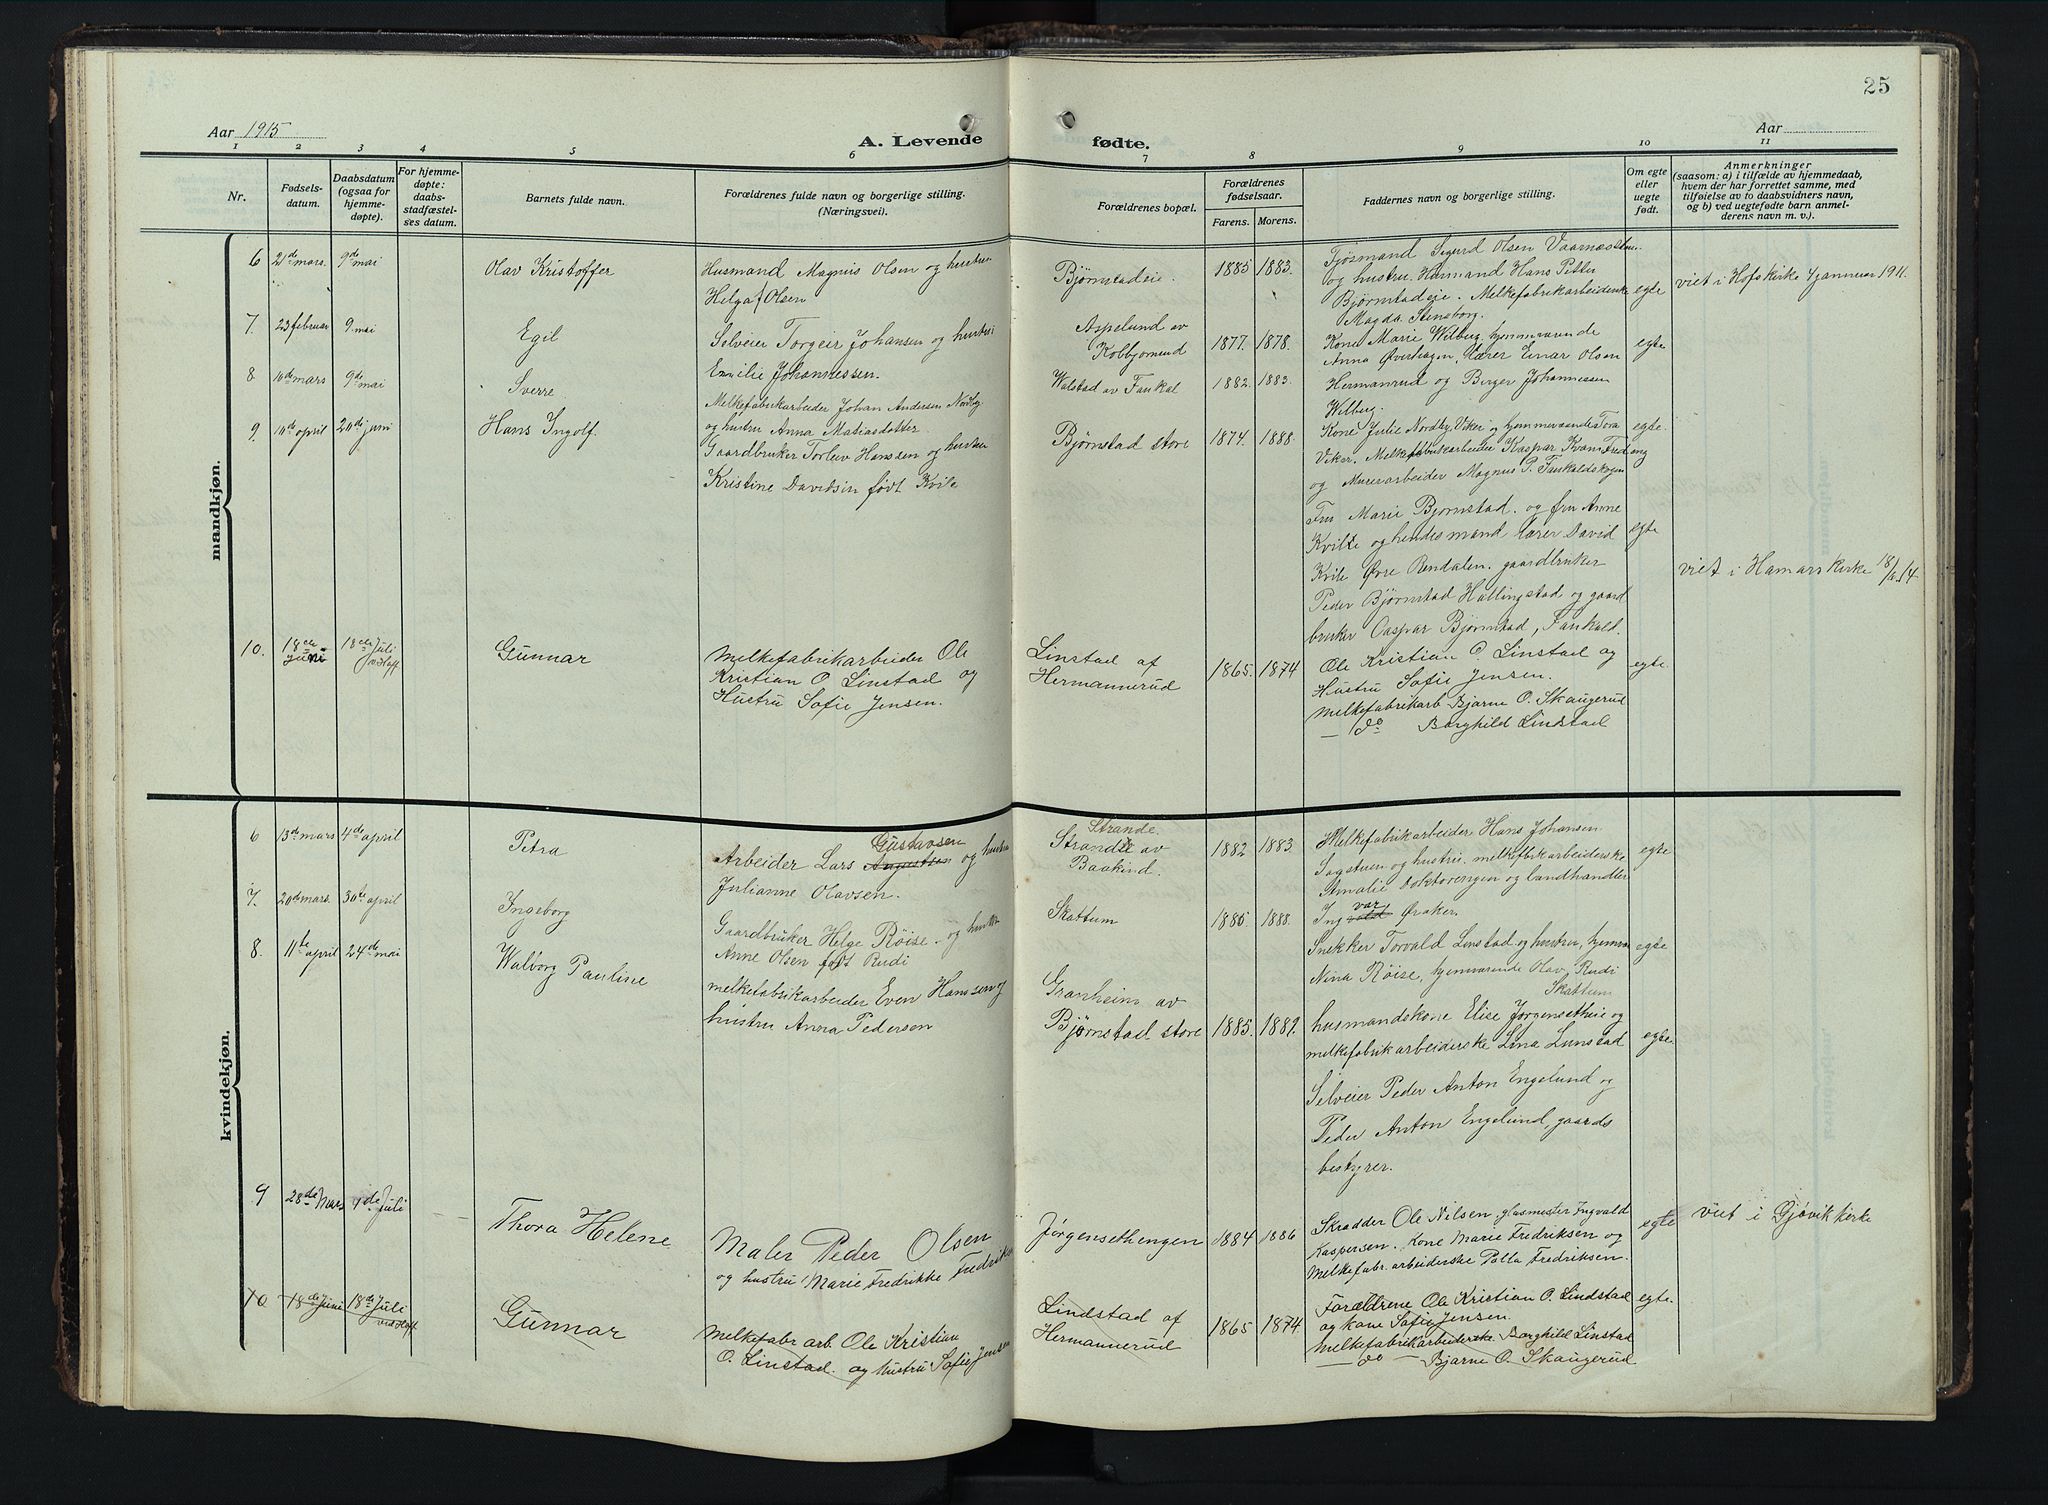 25
Aar 1915
A. Levende
fødte.
Aar
1 2 3 4 5 6 7 8 9 10 11
Nr.
Fødsels-
datum.
Daabsdatum
(ogsaa for
hjemme-
døpte).
For hjemme-
døpte:
daabs-
stadfæstel-
ses datum.
Barnets fulde navn.
Forældrenes fulde navn og borgerlige stilling.
(Næringsvei).
Forældrenes bopæl.
Forældrenes
fødselsaar.
Farens. Morens.
Faddernes navn og borgerlige stilling.
Om egte
eller
uegte
født.
Anmerkninger
(saasom: a) i tilfælde av hjemmedaab,
hvem der har forrettet samme, med
tilføielse av to daabsvidners navn,
og b) ved uegtefødte barn anmel-
derens navn m. v.).
mandkjøn.
6 21de mars. 9de mai
Olav Kristoffer
Husmand Magnus Olsen og hustru
Helga Olsen
Bjørnstadeie.
1885 1883.
Fjøsmand Sigurd Olsen
og hustru. Husmand Hans Petter
Bjørnstadeie. Melkefabrikarbeiderske
Magda Stensborg.
egte
viet i Hofs kirke 4 januar 1911.
7. 23 februar 9 mai
Egil
Selveier Torgeir Johansen og hustru
Emilie Johannessen.
Aspelund av
Kolbjørnrud
1877. 1878.
Kone Marie Wilberg, hjemmeværende
Anna Øverhagen, Lærer Einar Olsen
Hermanrud og Birger Johannessen
Wilberg.
egte
8 10de mars 9de mai
Sverre.
Melkefabrikarbeider Johan Andersen Nordby
og hustru Anna Matiasdotter
Walstad av Faukal
1882. 1883.
Kone Julie Nordby, Viker og hjemmeværende Tora
Viker. Melkefabrikarbeider Kaspar Kvam Fredeng
og Murerarbeider Magnus P. Faukaldskogen
egde.
9. 11te april 20de juni
Hans Ingolf.
Gaardbruker Torleiv Hanssen og hustru
Kristine Davidsen født Kvile
Bjørnstad store
1874. 1888.
Fru Marie Bjørnstad. og fru Anne
Kvile og hendes mand lærer David
Kvile Øvre Rendalen. gaardbruker
Peder Bjørnstad Hallingstad og gaard
bruker Caspar Bjørnstad, Faukald.
egte
viet i Hamars kirke 18/ 14
10. 18de juni 18de Juli
ved Hoff
Gunnar
Melkefabrikarbeider Ole
Kristian O. Linstad og
Hustru Sofie Jensen.
Linstad af
Hermannerud
1865. 1874
Ole Kristian O. Linstad og
Hustru Sofie Jensen.
Melkefabrikarb Bjarne O. Skaugerud
— do Borghild Lindstad
egte.
kvindekjøn.
6 13de mars 4de april
Petra
Gustavsen
Arbeider Lars Augustsen og hustru
Julianne Olavsen.
Strande.
Strande av
Baakind.
1882 1883.
Melkefabrikarbeider Hans Johansen
Sagstuen og hustru. melkefabrikarbeiderske
Amalie Doktorengen og landhandler
var
Ingvald Øraker.
egte
7. 20de mars. 30te april
Ingeborg
Gaardbruker Helge Røise. og hustru
Anne Olsen født Rudi
Skattum
1885 1888.
Snekker Torvald Linstad og hustru, hjemm
Nina Røise, hjemværende Olav Rudi
Skattum
egte
8. 11te april 24de mai
Walborg Pauline
melkefabrikarbeider Even Hanssen og
hustru Anna Pedersen
Granheim av
Bjørnstad store
1885. 1889.
husmandskone Elise Jørgensetheie og
melkefabrikarbeiderske Lina Lunstad
Selveier Peder Anton Engelund og
Peder Anton Engelund, gaards
bestyrer.
egte.
9 28de Mars 4de Juli
Thora Helene
Maler Peder Olsen
og hustru Marie Fredrikke Fredriksen
Jørgensethengen
1884 1886
Skrædder Ole Nilsen, glasmester Ingvald
Kaspersen. Kone Marie Fredriksen og
Melkefabr. arbeiderske Palla Fredriksen.
egte
viet i Gjøvik kirke
10 18de Juni 18de Juli
ved Hoff
Gunnar
Melkefabr arb. Ole Kristian
O. Linstad. og Hustru Sofie Jensen
Lindstad af
Hermannerud
1865 1874
Forældrene Ole Kristian O. Lindstad
og kone Sofie Jensen.
Melkefabrikarbeiderske Borghild Linstad
— do — Bjarne O. Skaugerud
egte.